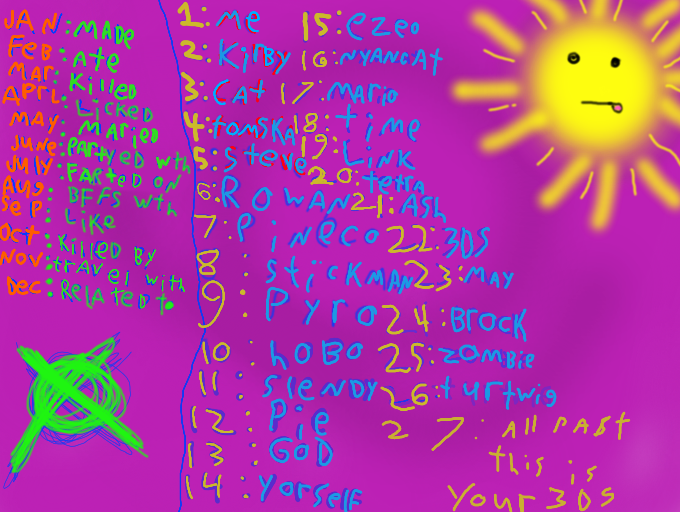 JAN: MADE
FEB: ATE
MAR: Killed
APRL: Licked
MAY: MARIED
JUNE: PARTYED WITH
JULY: FARTED ON
AUG: BFFS WITH
SEP: LIKE
Oct: Killed BY
NOV: travel with
Dec: RELATED t.
1: Me
2: KirBy
3: CAt
4: tomSKA
5: Steve
6: ROWAN
7: PiNeco
8: StiCKMAN
9: Pyro
10: hoBo
11: SleNDY
12: Pie
13: GoD
14: YorSelf
15: ezeo
16: NYANCAT
17: MARio
18: time
19: LiNK
20: tetRA
21: ASh
22: 3DS
23: MAY
24: BROCK
25: zomBie
26: turtwig
27: All PAST
this is
Your 3DS